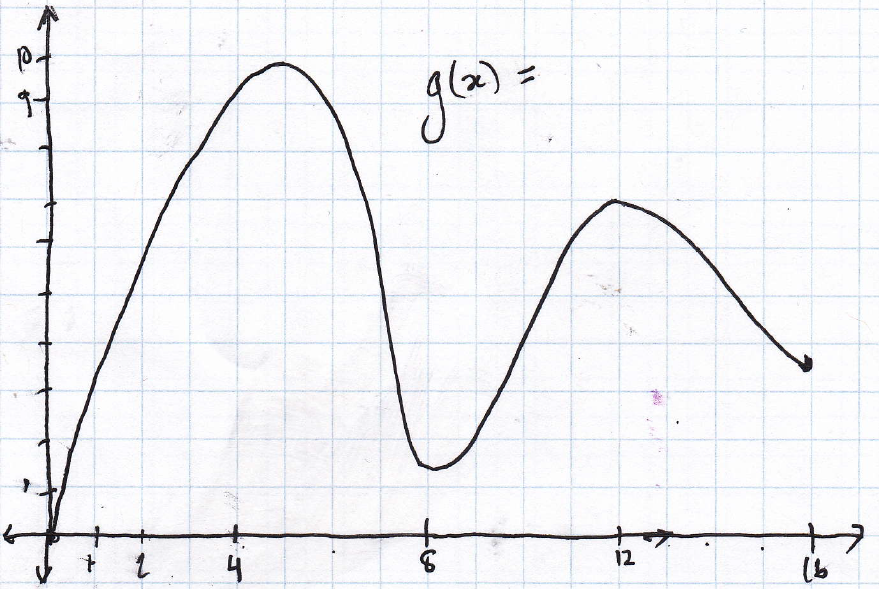 10
9
g(x) =
1
1 2 4 8 12 16